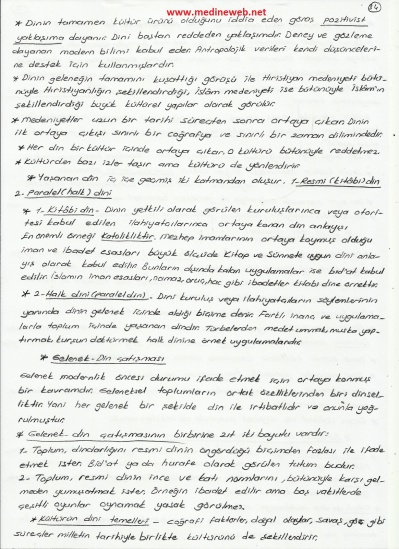 www.medineweb.net
* Dinin tamamen kültür ürünü olduğunu iddia eden görüş pozitivist
yaklaşıma dayanır. Dini baştan reddeden yaklaşımdır. Deney ve gözleme
dayanan modern bilimi kabul eder. Antropolojik verileri kendi düşünceleri-
ne destek için kullanmışlardır.
* Dinin geleneğin tamamını kuşattığı görüşü ile Hıristiyan medeniyeti bütü-
nüyle Hıristiyanlığın şekillendirdiği, İslâm medeniyeti ise bütünüyle İslâm'ın
şekillendirdiği büyük kültürel yapılar olarak görülür.
* Medeniyetler uzun bir tarihi süreçten sonra ortaya çıkar. Dinin
ilk ortaya çıkışı sınırlı bir coğrafya ve sınırlı bir zaman dilimindedir.
* Her din bir kültür içinde ortaya çıkar. O kültürü bütünüyle reddetmez.
* Kültürden bazı izler taşır ama kültürü de yönlendirir
* Yaşanan din iç içe geçmiş iki katmandan oluşur. 1- Resmi (kitâbi) din
2- Paralel (halk) dini
* 1- Kitâbi din- Dinin yetkili olarak görülen kuruluşlarınca veya otori-
tesi kabul edilen ilahiyatçılarınca ortaya konan din anlayışı
En önemli örneği Katolikliktir. Mezhep imamlarının ortaya koymuş olduğu
iman ve ibadet esasları büyük ölçüde Kitap ve Sünnete uygun dini anla-
yış olarak kabul edilir. Bunların dışında kalan uygulamalar ise bid'at kabul
edilir. İslamın iman esasları, namaz, oruç, hac gibi ibadetler kitabi dine örnektir.
* 2- Halk dini (Paralel din)- Dini kuruluş veya ilahiyatçıların söylemlerinin
yanında dinin gelenek içinde aldığı biçime denir. Farklı inanç ve uygulama-
larla toplum içinde yaşanan dindir. Türbelerden medet ummak, muska yap-
tırmak, kurşun döktürmek halk dinine örnek uygulamalardır.
* Gelenek-Din çatışması
Gelenek modernlik öncesi durumu ifade etmek için ortaya konmuş
bir kavramdır. Geleneksel toplumların ortak özelliklerinden biri dinsel-
liktir. Yani her gelenek bir şekilde din ile irtibatlıdır ve onunla yoğ-
rulmuştur.
* Gelenek din çatışmasının birbirine zıt iki boyutu vardır:
1- Toplum, dindarlığını resmi dinin öngördüğü biçimden fazlası ile ifade
etmek ister. Bid'at ya da hurafe olarak görülen tutum budur.
2- Toplum, resmi dinin ince ve katı normlarını, bütünüyle karşı gel-
meden yumuşatmak ister. Örneğin ibadet edilir ama boş vakitlerde
çeşitli oyunlar oynamak yasak görülmez.
* Kültürün dini temelleri - coğrafi faktörler, doğal olaylar, savaş, göç gibi
süreçler milletin tarihiyle birlikte kültürünü de şekillendirir.